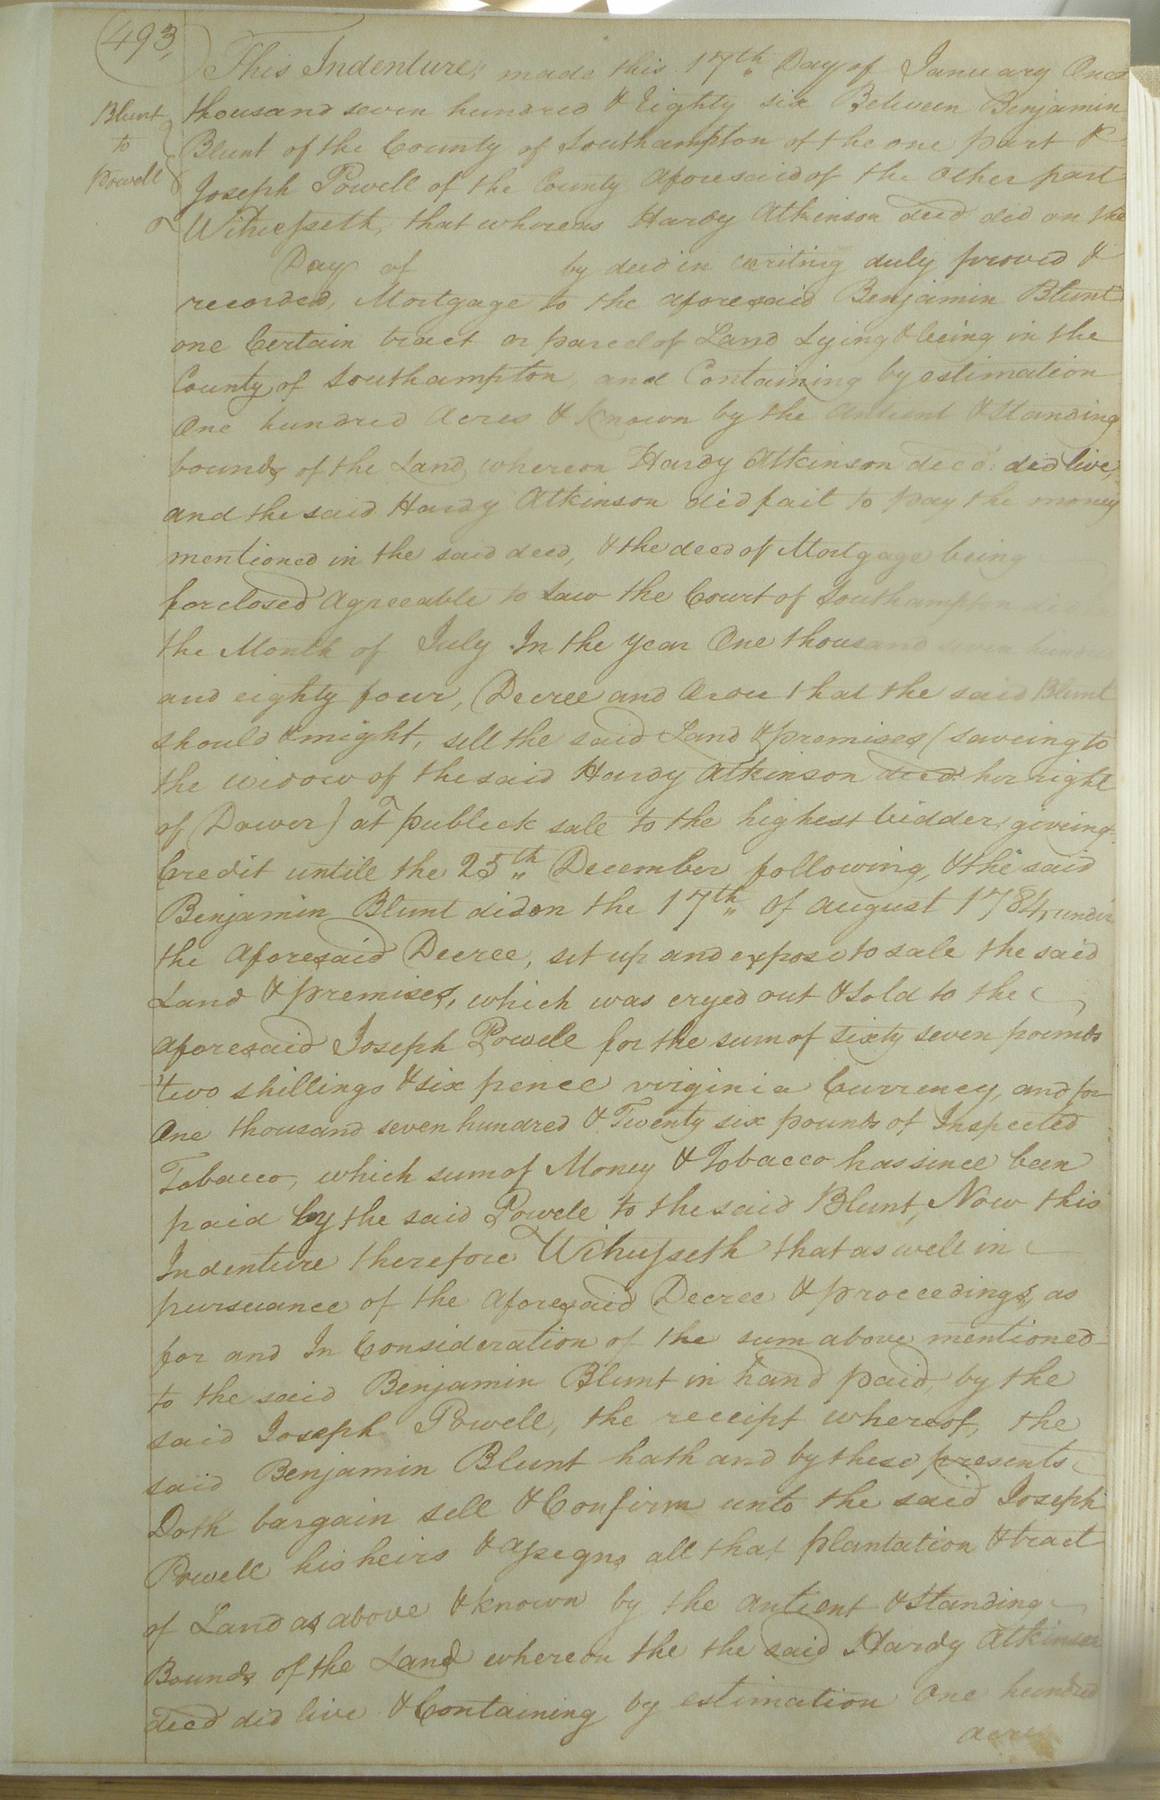 493,
Blunt
to
Powell
This Indenture, made this 17th Day of January One
thousand seven hundred & Eighty six Between Benjamin
Blunt of the County of Southampton of the one part &
Joseph Powell of the County aforesaid of the Other part
Witnesseth, that whereas Hardy Atkinson decd did on the
Day of by deed in writing duly proved &
recorded, Mortgage to the aforesaid Benjamin Blunt
one Certain tract or parcel of Land Lying & being in the
County of Southampton, and Containing by estimation
One hundred Acres & known by the antient & Standing
bounds of the Land, whereon Hardy Atkinson decd. did live,
and the said Hardy Atkinson did fail to pay the money
mentioned in the said deed, & the deed of Mortgage being
forclosed Agreeable to Law the Court of Southampton in
the Month of July In the year One thousand seven hundred
and eighty four, Decree and that the said Blunt
should & might, sell the said Land & premises (saveing to
the widow of the said Hardy Atkinson decd. her right
of Dower) at publeck sale to the highest bidder, giveing
Credit untill the 25th December following, & the said
Benjamin Blunt did on the 17th of august 1784, under
the aforesaid Decree, set up and expose to sale the said
Land & premises, which was cryed out & sold to the
aforesaid Joseph Powell for the sum of sixty seven pounds
two shillings & six pence virginia Currency, and for
One thousand seven hundred & Twenty six pounds of Inspected
Tobacco, which sum of Money & Tobacco has since been
paid by the said Powell to the said Blunt, Now this
Indenture therefore Witnesseth that as well in
pursuance of the aforesaid Decree & proceedings, as
for and In Consideration of the sum above mentioned
to the said Benjamin Blunt in hand paid by the
said Joseph Powell, the receipt whereof, the
said Benjamin Blunt hath and by these presents
Doth bargain sell & Confirm unto the said Joseph
Powell his heirs & assegns all that plantation & tract
of Land as above & known by the antient & Standing
Bounds of the Land whereon the the said Hardy Atkinson
decd did live & Containing by estimation One hundred
acres